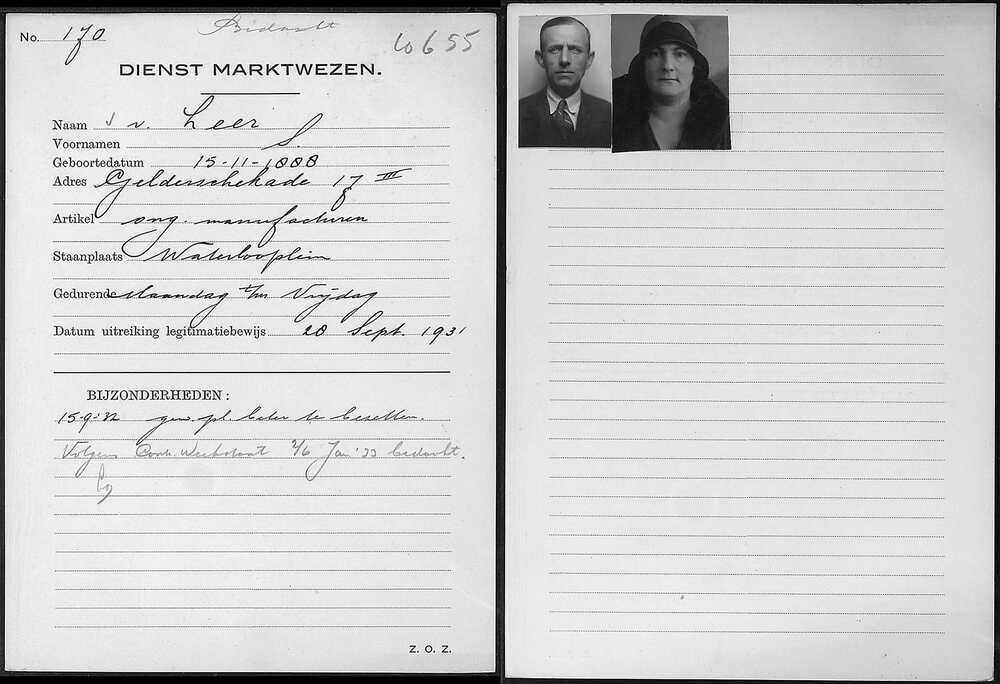 No. 170
Bedankt
10655
DIENST MARKTWEZEN.
Naam v. Leer
Voornamen S.
Geboortedatum 15-11-1888
Adres Gelderschekade 17 III
Artikel ong. manufacturen
Staanplaats Waterlooplein
Gedurende Maandag t/m Vrijdag
Datum uitreiking legitimatiebewijs 28 Sept. 1931
BIJZONDERHEDEN:
15-9-'32 gew. pl. beter te bezetten.
Volgens Contr. Weekstaat 2/6 Jan '33 bedankt.
Z. O. Z.